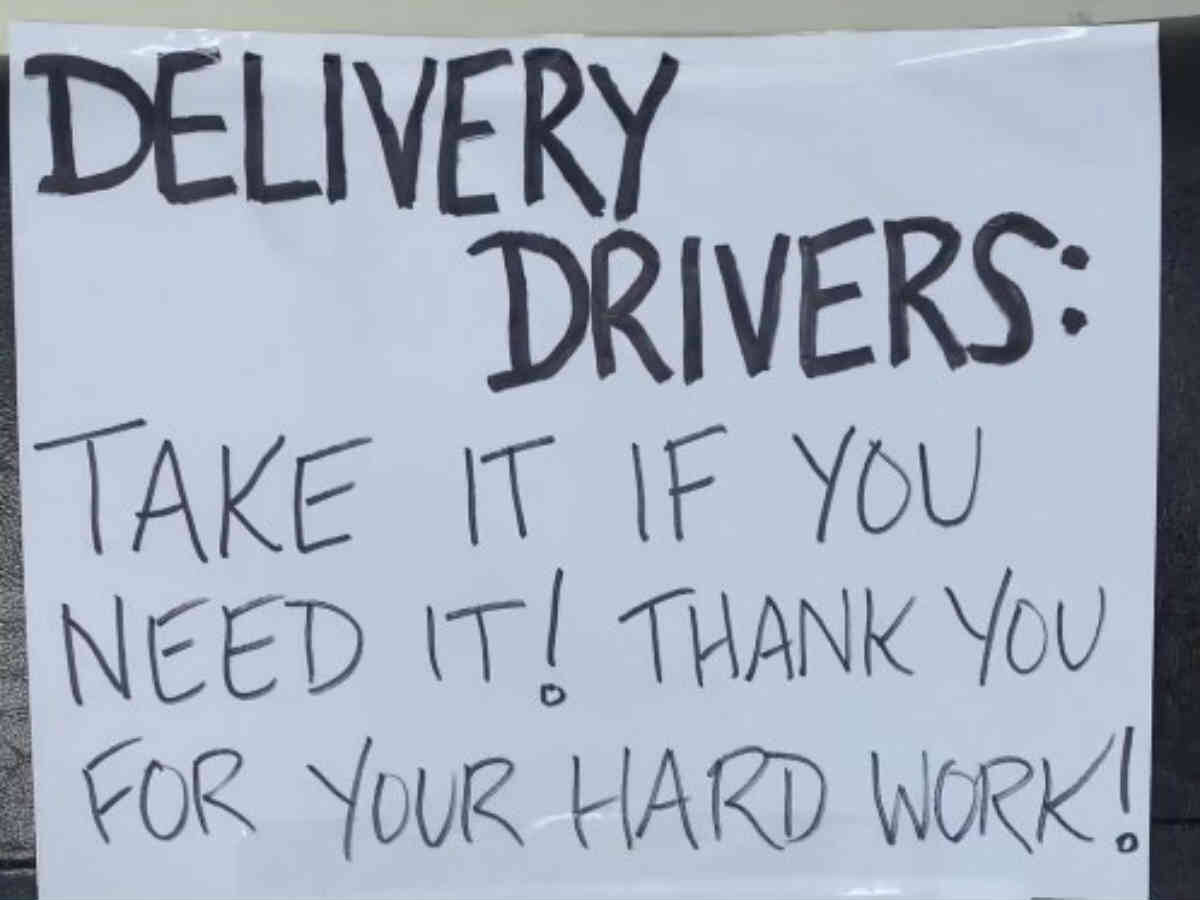 DELIVERY
DRIVERS:
TAKE IT IF YOU
NEED IT! THANK YOU
FOR YOUR HARD WORK!